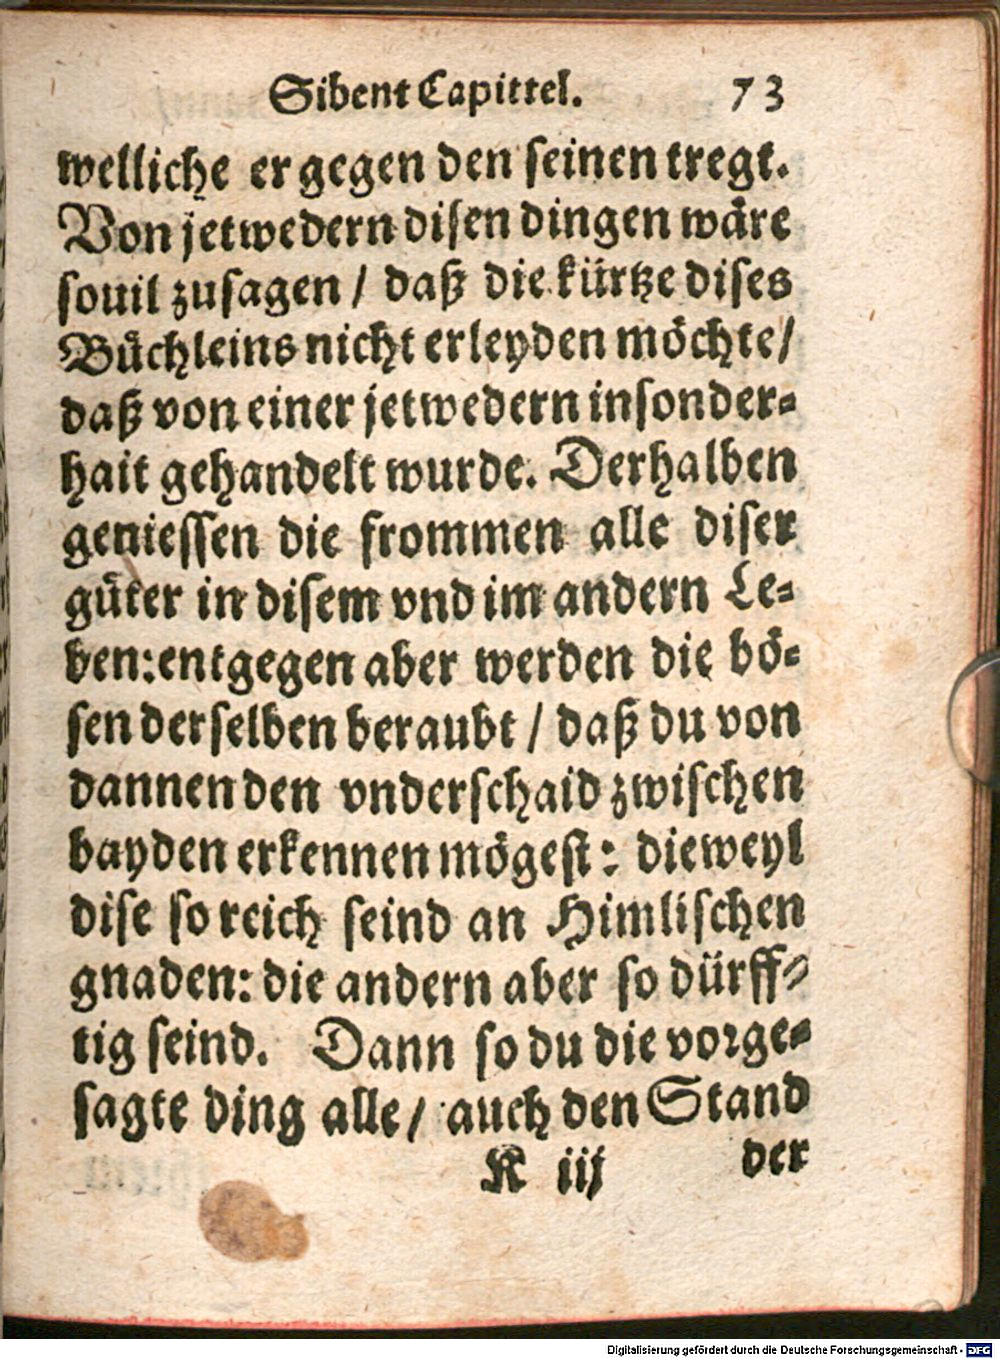 Sibent Capittel. 73
welliche er gegen den seinen tregt.
Von jetwedern disen dingen wäre
souil zusagen / daß die kürtze dises
Büchleins nicht erleyden möchte /
daß von einer jetwedern insonder-
hait gehandelt wurde. Derhalben
geniessen die frommen alle diser
güter in disem vnd im andern Le-
ben: entgegen aber werden die bö-
sen derselben beraubt / daß du von
dannen den vnderschaid zwischen
bayden erkennen mögest: dieweyl
dise so reich seind an Himlischen
gnaden: die andern aber so dürff-
tig seind. Dann so du die vorge-
sagte ding alle / auch den Stand
K iij der
Digitalisierung gefördert durch die Deutsche Forschungsgemeinschaft - DFG